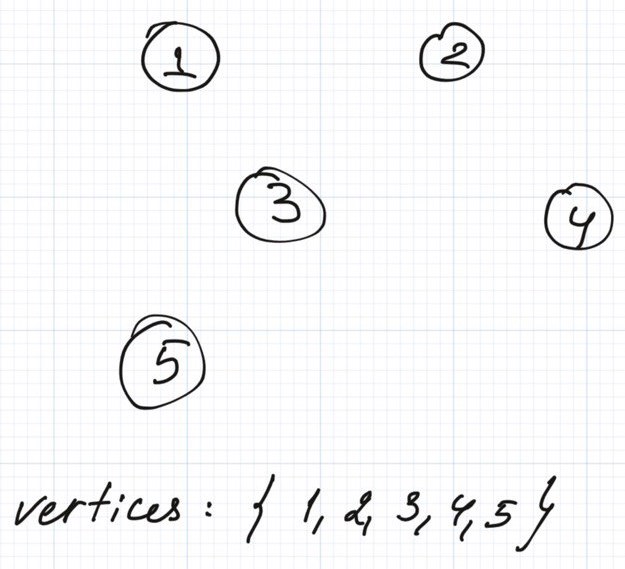 1
2
3
4
5
vertices: { 1, 2, 3, 4, 5 }